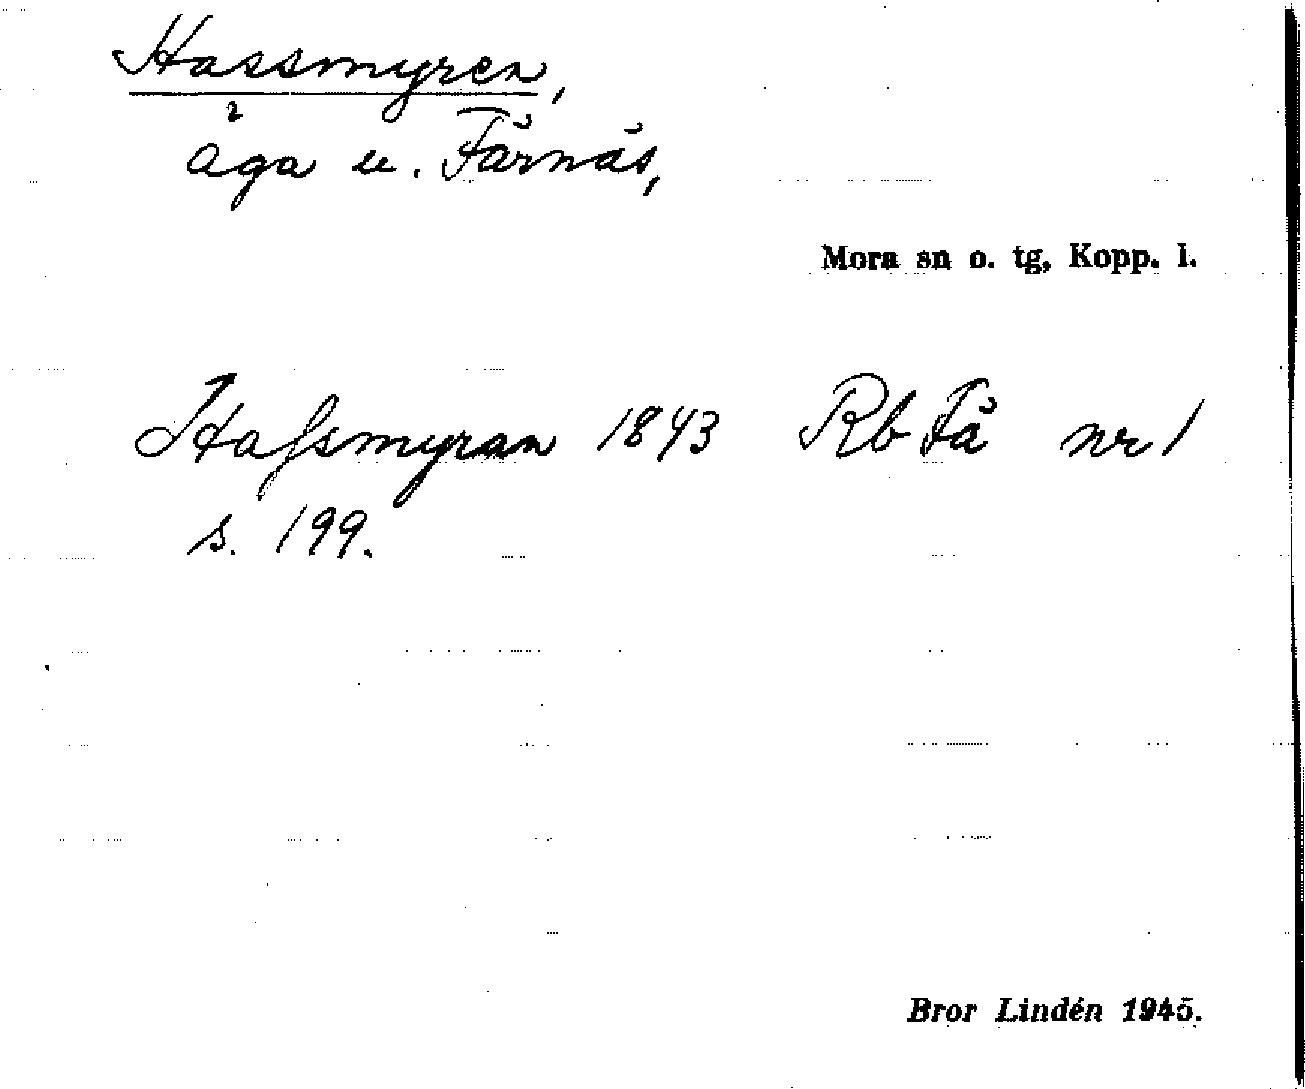 Hassmyren,
äga u. Färnäs,
Mora sn o. tg, Kopp. l.
Hafsmyran 1843 Rb Fä nr 1
s. 199.
Bror Lindén 1945.